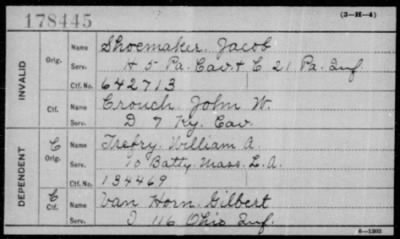 178445
(3-H-4)
INVALID
Orig. Name Shoemaker, Jacob
Serv. H 5 Pa. Cav. & C 21 Pa. Inf
Ctf. No. 642713
Ctf. Name Crouch, John W.
Serv. D 7 Ky. Cav.
DEPENDENT
C Orig. Name Trefry, William A.
Serv. 10 Batty. Mass. L. A.
Ctf. No. 134469
C Ctf. Name Van Horn, Gilbert
Serv. D 116 Ohio Inf.
6-1303